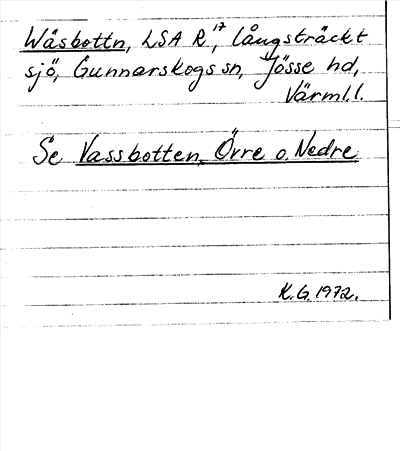 Wäsbottn, LSA R 17, långsträckt
sjö, Gunnarskogs sn, Jösse hd,
Värml.l.
Se Vassbotten, Örre o. Nedre
K.G. 1972.